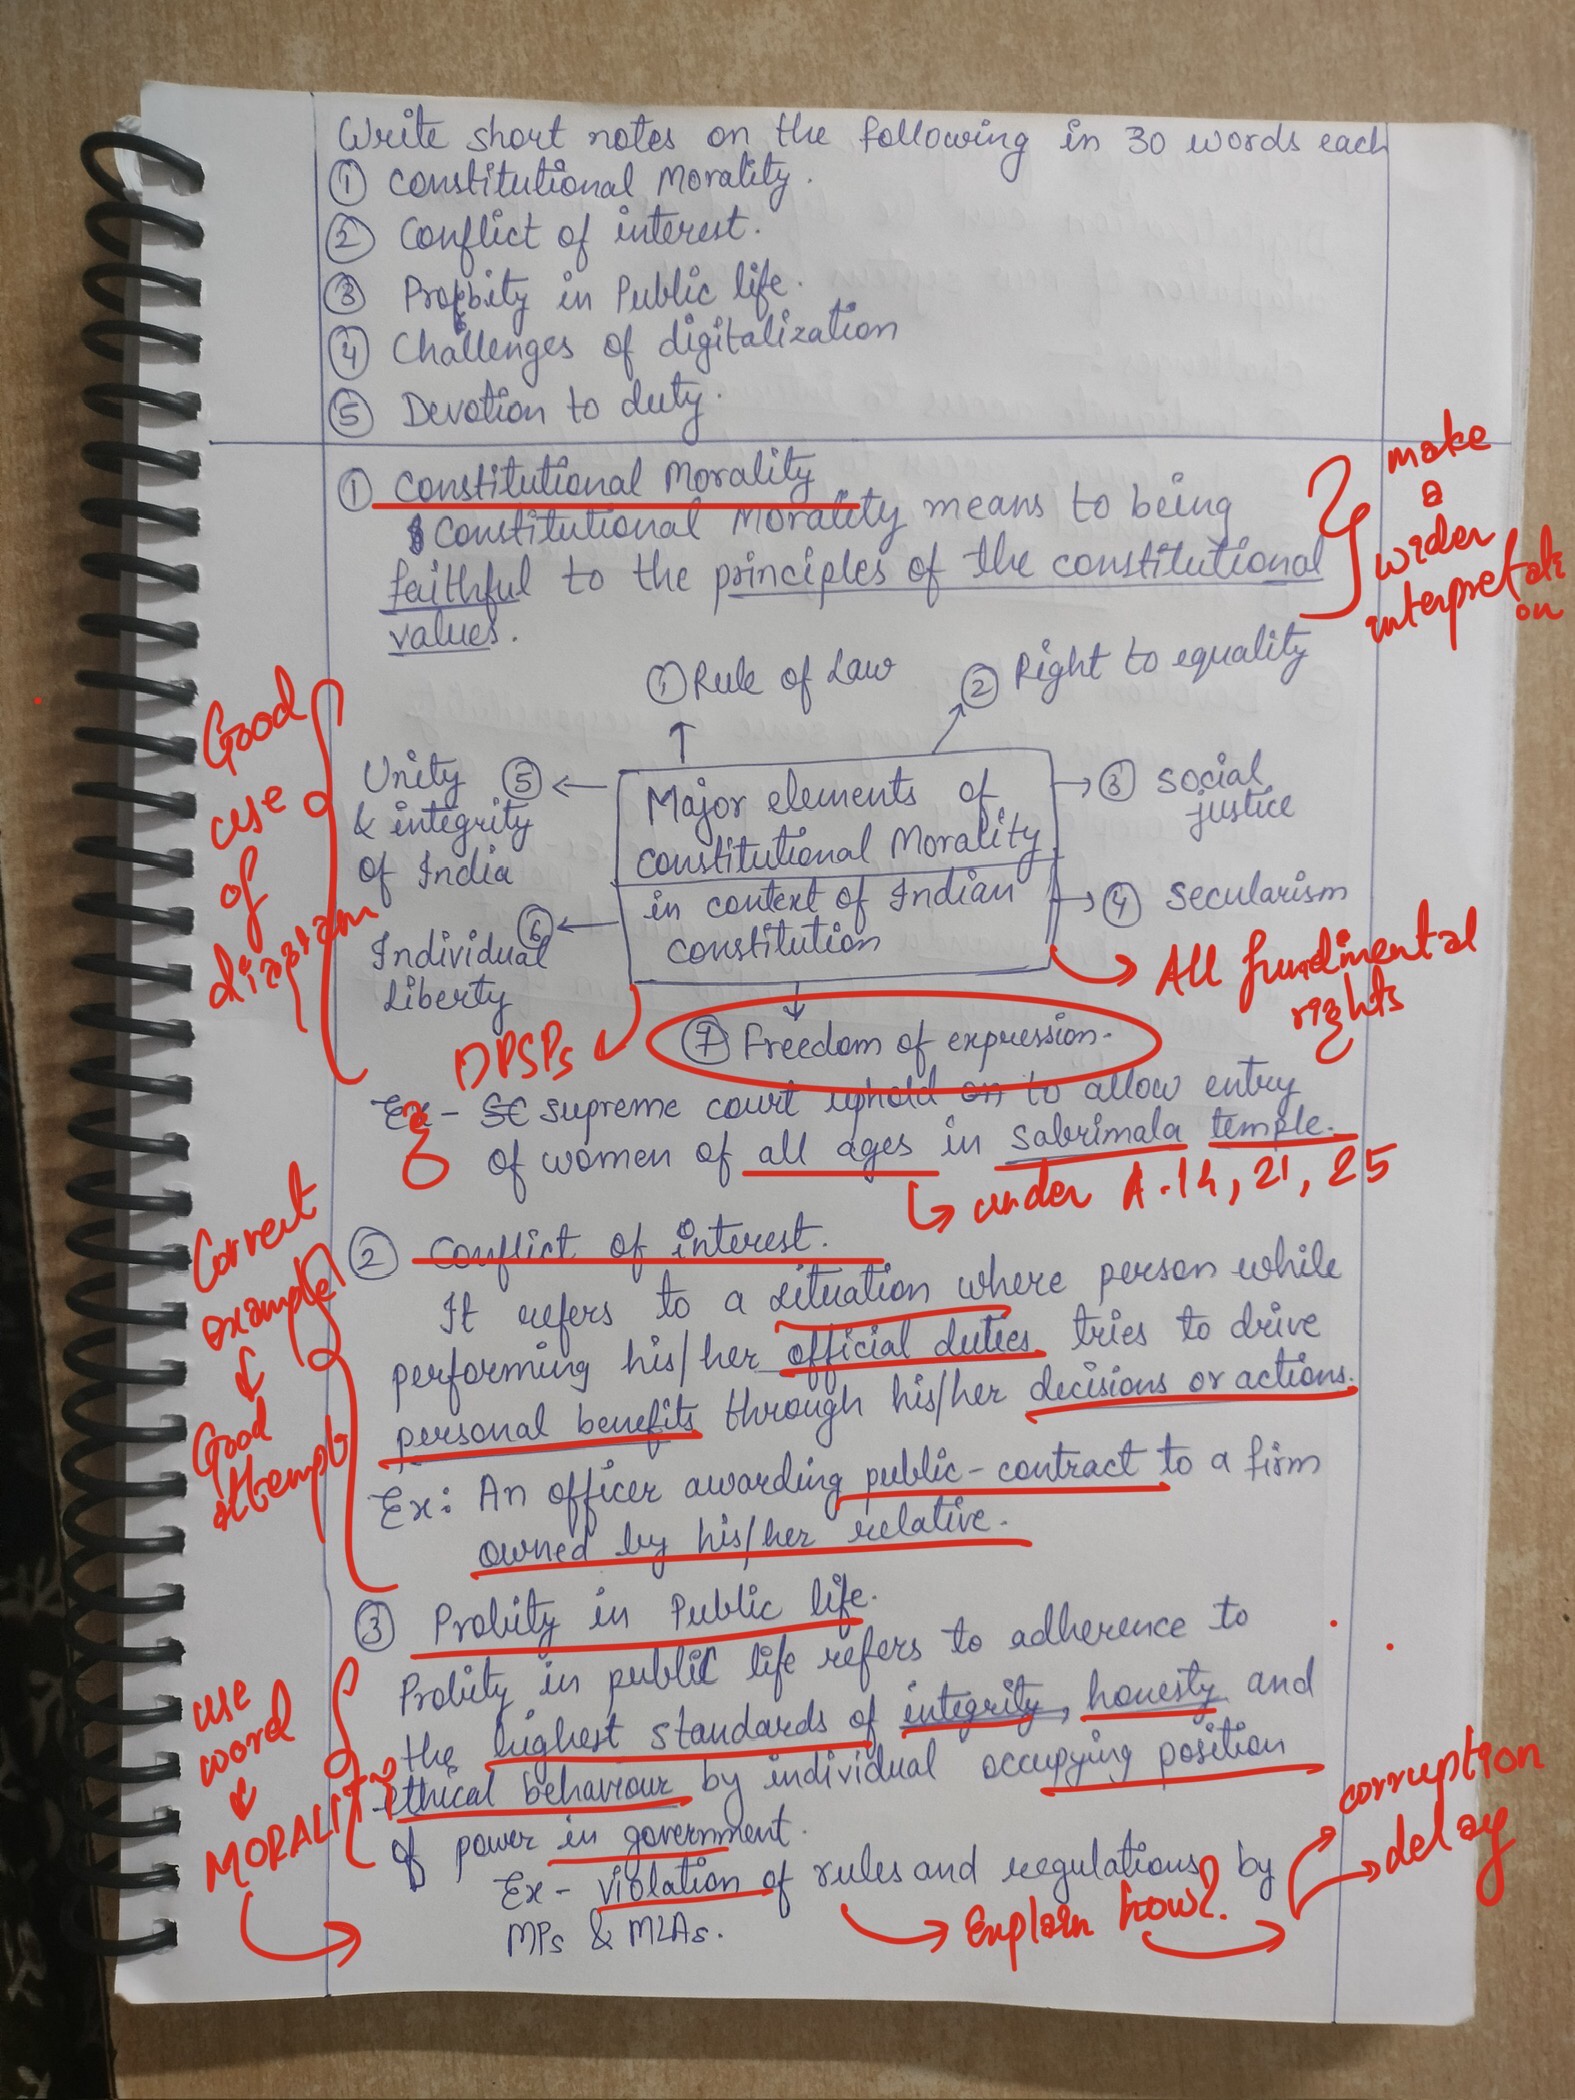 Write short notes on the following in 30 words each
① Constitutional Morality.
② Conflict of interest.
③ Probity in Public life.
④ Challenges of digitalization
⑤ Devotion to duty.
① Constitutional Morality
Constitutional Morality means to being
faithful to the principles of the constitutional
values.
make
a
wider
interpretati
on
① Rule of Law
② Right to equality
Good
use
of
diagram
Unity ⑤
& integrity
of India
Major elements of
constitutional Morality
in context of Indian
constitution
③ Social
justice
④ Secularism
⑥
Individual
Liberty
All fundimental
rights
DPSPs
⑦ Freedom of expression.
Ex - SC supreme court uphold on to allow entry
of women of all ages in Sabrimala temple.
under A.14, 21, 25
② Conflict of interest.
Correct
example
&
Good
attempt
It refers to a situation where person while
performing his/her official duties tries to drive
personal benefits through his/her decisions or actions.
Ex: An officer awarding public-contract to a firm
owned by his/her relative.
③ Probity in Public life.
Probity in public life refers to adherence to
the highest standards of integrity, honesty and
ethical behaviour by individual occupying position
of power in government.
use
word
MORALITY
Ex - violation of rules and regulations by
MPs & MLAs.
Explain how?
corruption
delay